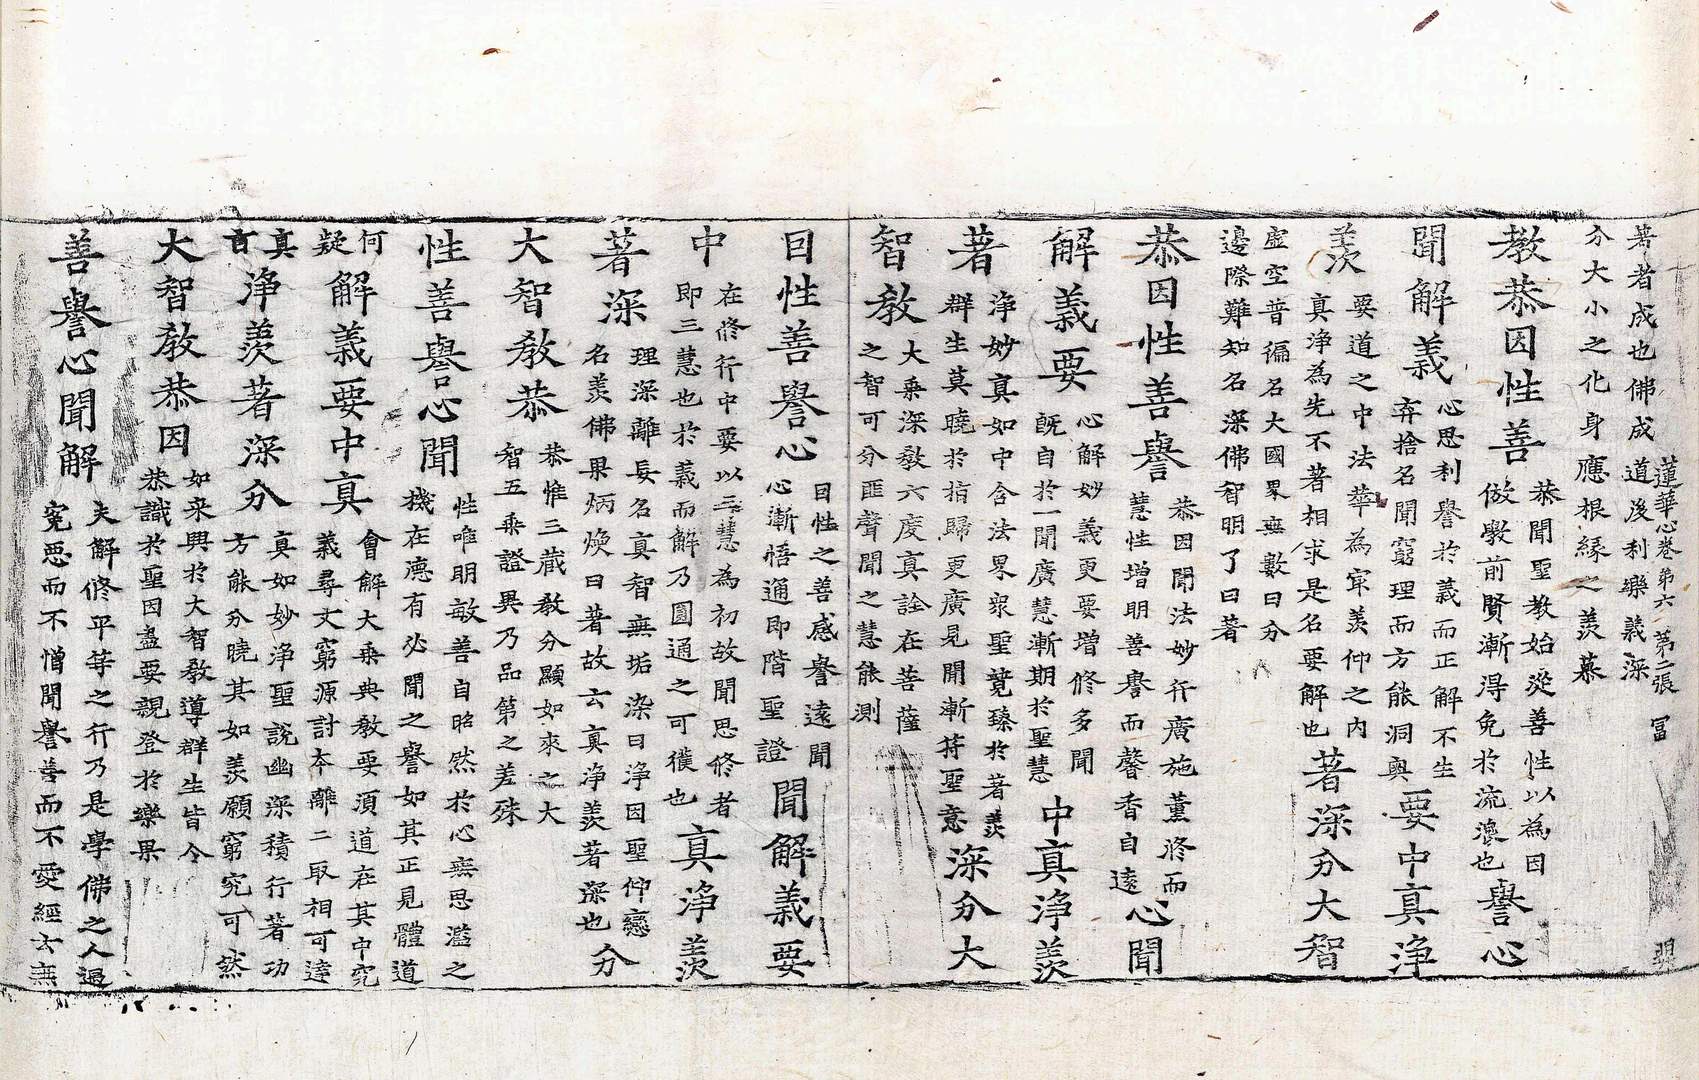 著者成也佛成道後利樂義深
蓮華心卷第六 第二張 冨
分大小之化身應根緣之羨慕
教恭因性善
恭聞聖教始從善性以為因
做斆前賢漸得免於流浪也
譽心
聞解義
心思利譽於義而正解不生
弃捨名聞窮理而方能洞奥
要中真淨
羨
要道之中法華為宗羨仰之內
真淨為先不著相求是名要解也
著深分大智
虛空普徧名大國界無數曰分
邊際難知名深佛智明了曰著
恭因性善譽
恭因聞法妙行廣施薰修而
慧性增明善譽而馨香自遠
心聞
解義要
心解妙義更要增修多聞
既自於一聞廣慧漸期於聖慧
中真淨羨
著
淨妙真如中含法界眾聖競臻於著羨
群生莫曉於指歸更廣見聞漸符聖意
深分大
智教
大乘深教六度真詮在菩薩
之智可分匪聲聞之慧能測
因性善譽心
因性之善感譽遠聞
心漸悟通即階聖證
聞解義要
中
在修行中要以三慧為初故聞思修者
即三慧也於義而解乃圓通之可獲也
真淨羨
著深
理深離妄名真智無垢染曰淨因聖仰戀
名羨佛果炳煥曰著故云真淨羨著深也
分
大智教恭
恭惟三藏教分顯如來之大
智五乘證異乃品第之差殊
性善譽心聞
性唯明敏善自昭然於心無思濫之
機在德有必聞之譽如其正見體道
何
疑
解義要中真
會解大乘典教要須道在其中究
義尋文窮源討本離二取相可達
真
言
淨羨著深分
真如妙淨聖說幽深積行著功
方能分曉其如羨願窮究可然
大智教恭因
如來興於大智教導群生皆令
恭識於聖因盡要親登於樂果
善譽心聞解
夫解修平等之行乃是學佛之人過
冤惡而不憎聞譽善而不愛經云無